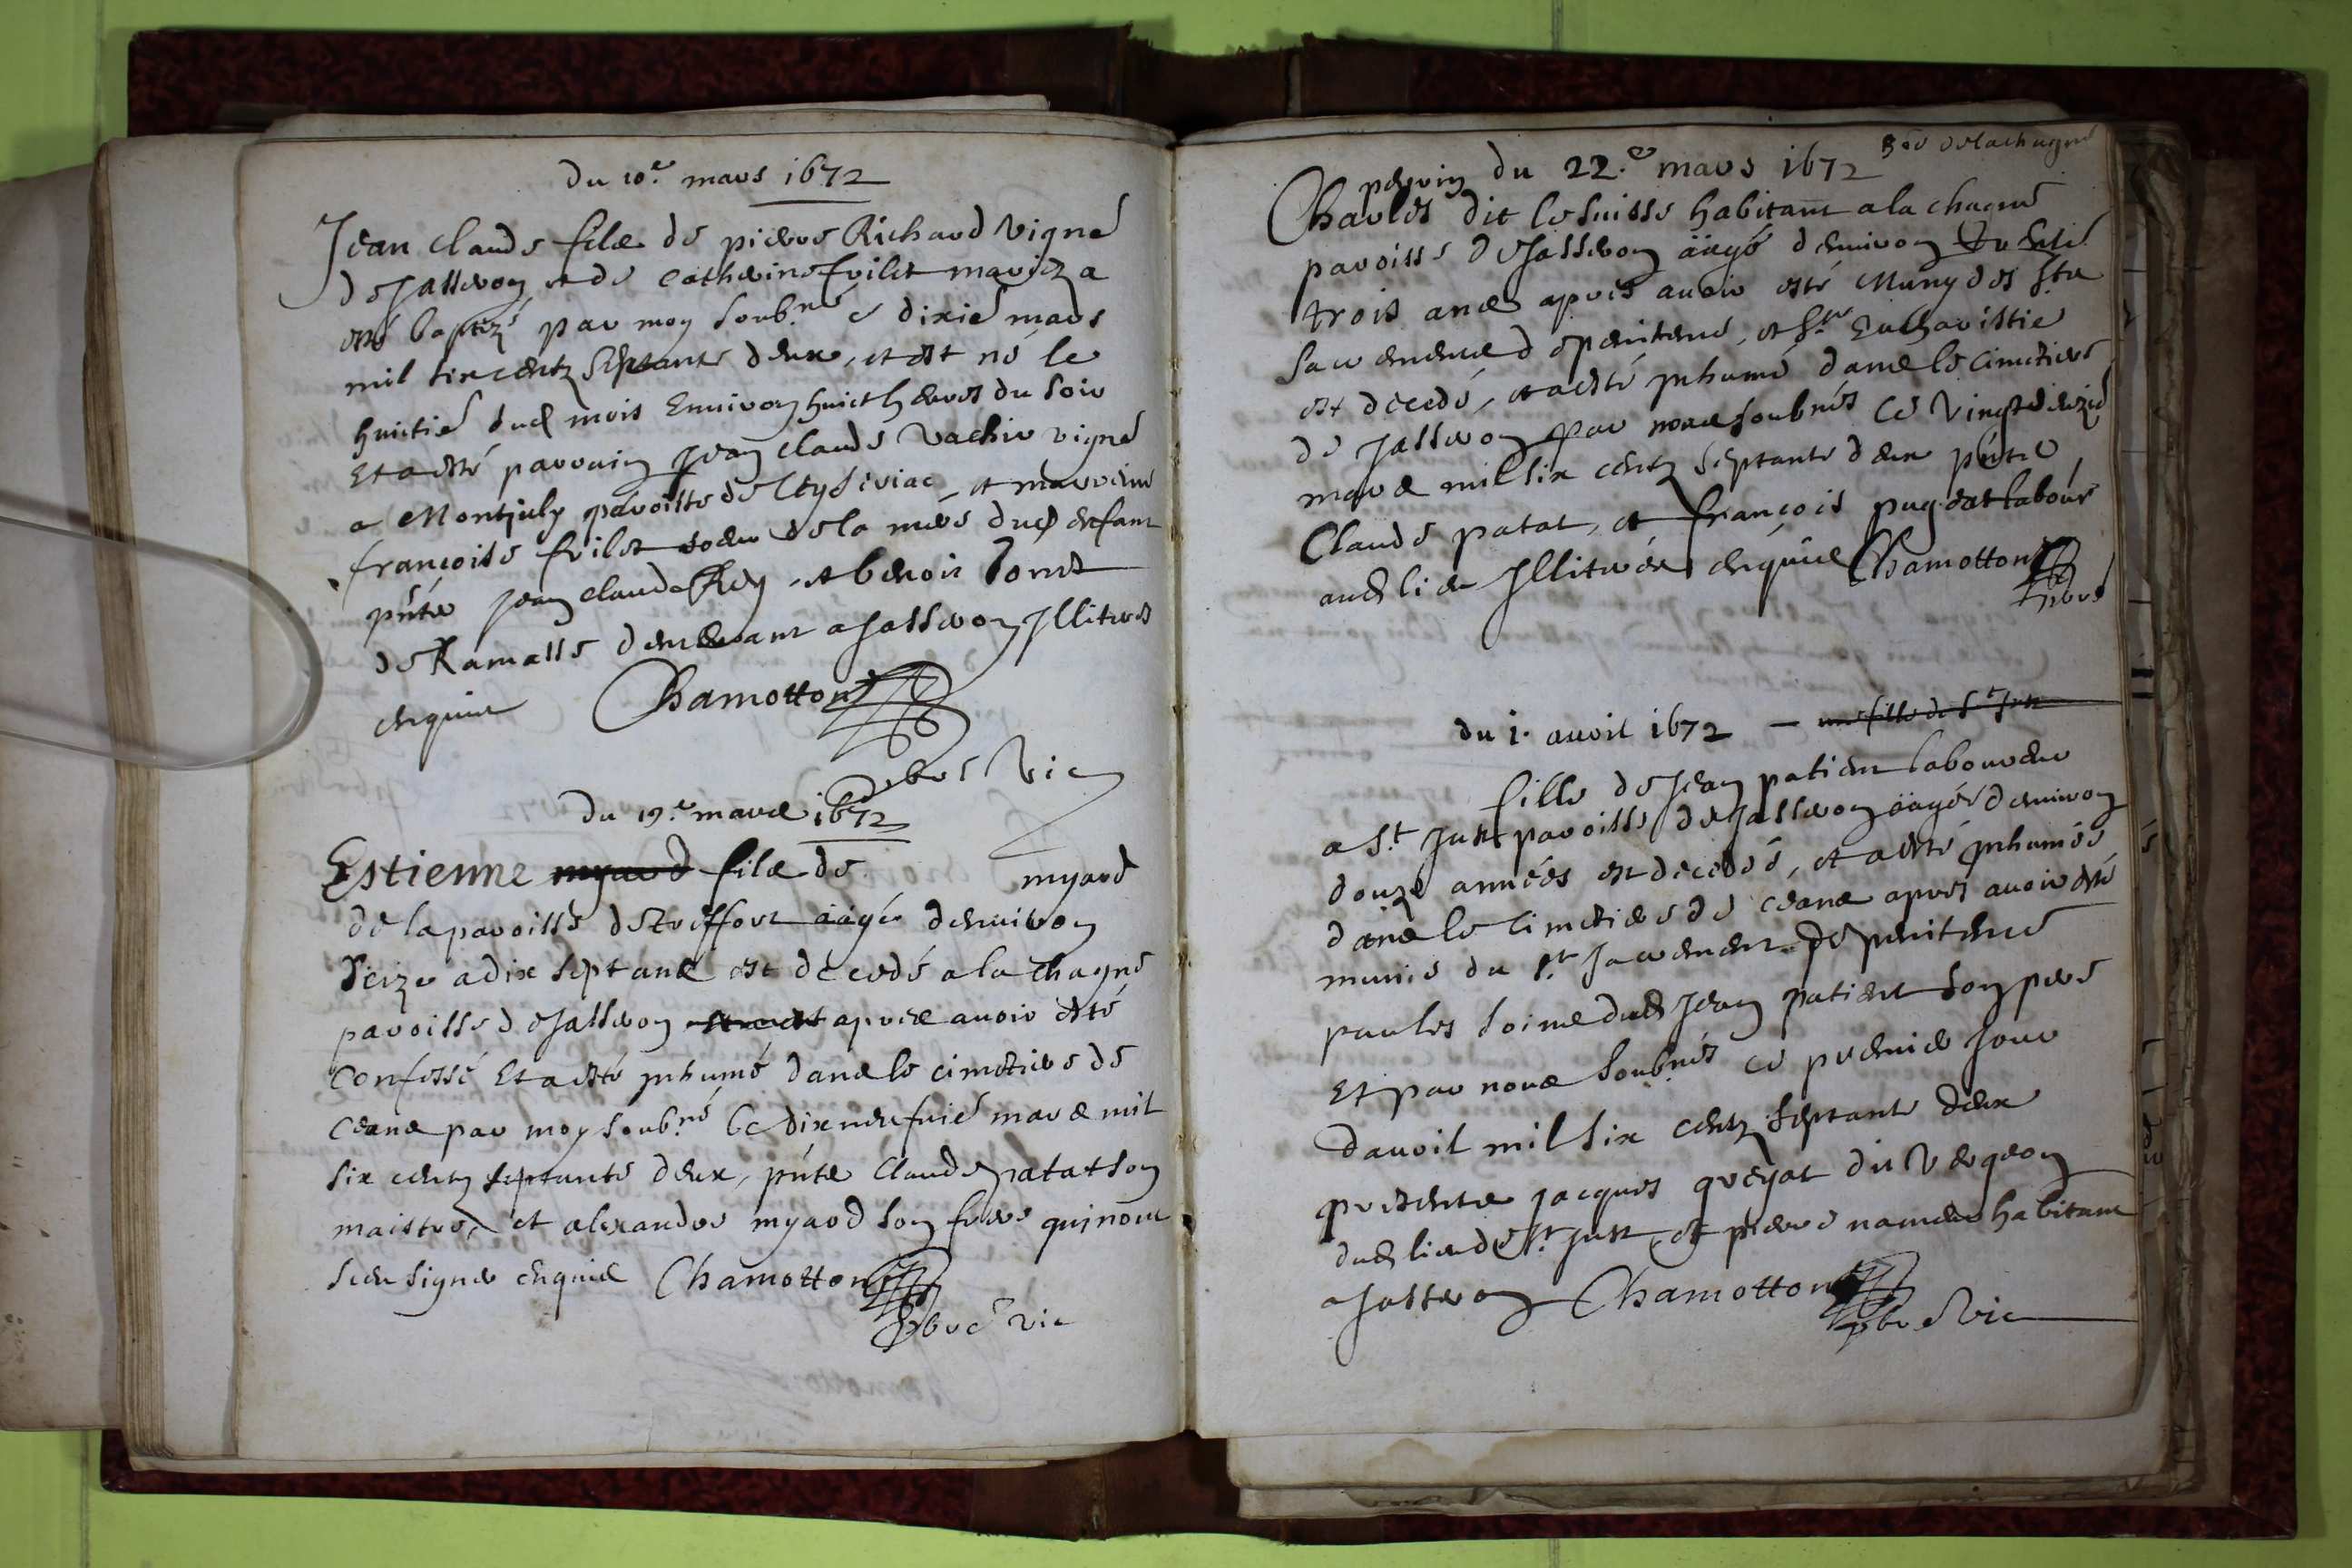 du 10.e mars 1672
Jean Claude filz de pierre Richard vigne
de Jasseron et de Catherine frilet mariez a
esté baptizé par moy soub.né ce dixie mars
mil six centz septante deux, et est né le
huictie dud mois Environ huict heures du soir
Et a esté parrain Jean Claude vachir vigne
a Montjuly paroisse de Ceyseriac, et marraine
françoise frilet soeur de la mere dud enfant
pnts Jean Claude Rey et benoir
de Ramasse demeurant a Jasseron Illitres
enquis Chamotton
pbre Vic
du 19.e mars 1672
Estienne myard filz de myard
de la paroisse de treffort aagé denviron
seize a dix sept ans est decedé a la Chagne
paroisse de Jasseron apres avoir esté
Confessé Et a esté inhumé dans le cimetiere de
ceans par moy soub.né le dix neufvie mars mil
six centz septante deux, pnts Claude patat son
maistre, et alexandre myard son frere qui nont
sceu signer enquis Chamotton
pbre vic
de la chagne
perrin du 22.e mars 1672
Charles dit le suisse habitant a la chagne
paroisse de Jasseron aagé denviron
trois ans apres avoir esté Muny des sts
sacremens de penitence, et s.te Eucharistie
est decedé, et a esté inhumé dans le cimetiere
de Jasseron par nous soubnés ce vingt deuzie
mars mil six centz septante deux pnts
Claude patat, et françois pugeat labour
aud lieu Illitrés enquis Chamotton
pbre
du 1. avril 1672 — une fille de St Just
fille de Jean patient laboureur
a S.t Just paroisse de Jasseron aagée denviron
douze années est decedée, et a esté inhumée
dans le cimetiere de ceans apres avoir esté
munie du s.t sacrement de penitence
par les soins dud Jean patient son pere
Et par nous soubnés ce premier jour
davril mil six centz septante deux
presents Jacques greyat dit Vergeon
dud lieu de s.t Just, et pierre namer habitant
a Jasseron Chamotton
pbre Vic